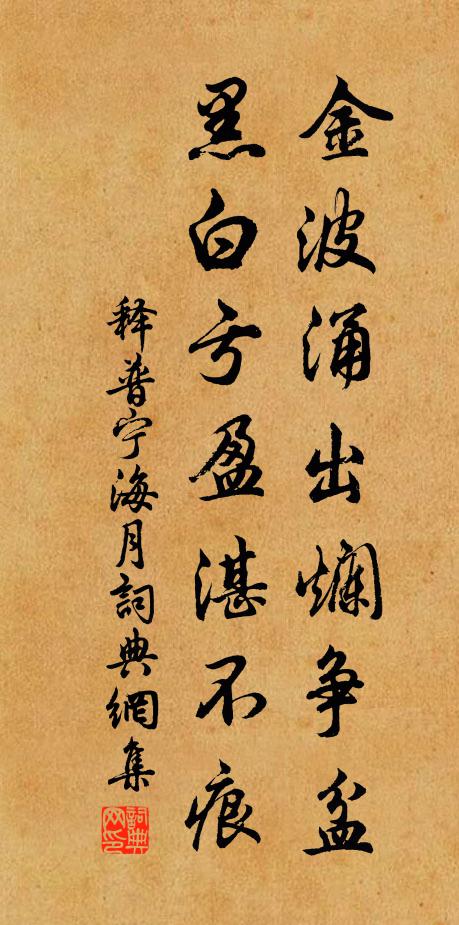 金波涌出爛争盆
黑白亏盈湛不痕
释普宁海月詞典網集
詞典网印